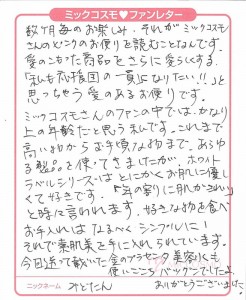 ミックコスモ♥ファンレター
数ヶ月毎のお楽しみ、それがミックコスモ
さんのピンクのお便りを読むことなんです。
愛のこもった商品をさらに愛らしくする
「私も応援団の一員になりたい!!」と
思っちゃう愛のあるお便りです。
ミックコスモさんのファンの中では、かなり
上の年齢だと思う私です。これまで
高い物からお手頃な物まで、あらゆ
る製品を使ってきましたが、ホワイト
ラベルシリーズはとにかくお肌に優し
くて好きです。「年の割りに肌がきれい」
と時々言われます。好きな物を食べ
お手入れはなるべくシンプルに!
それで素肌美を手に入れられています。
今回送って戴いた金のプラセンタ美容水も
使いこごちバツグンでしたよ。
ありがとうございました。
ニックネーム
みどたん